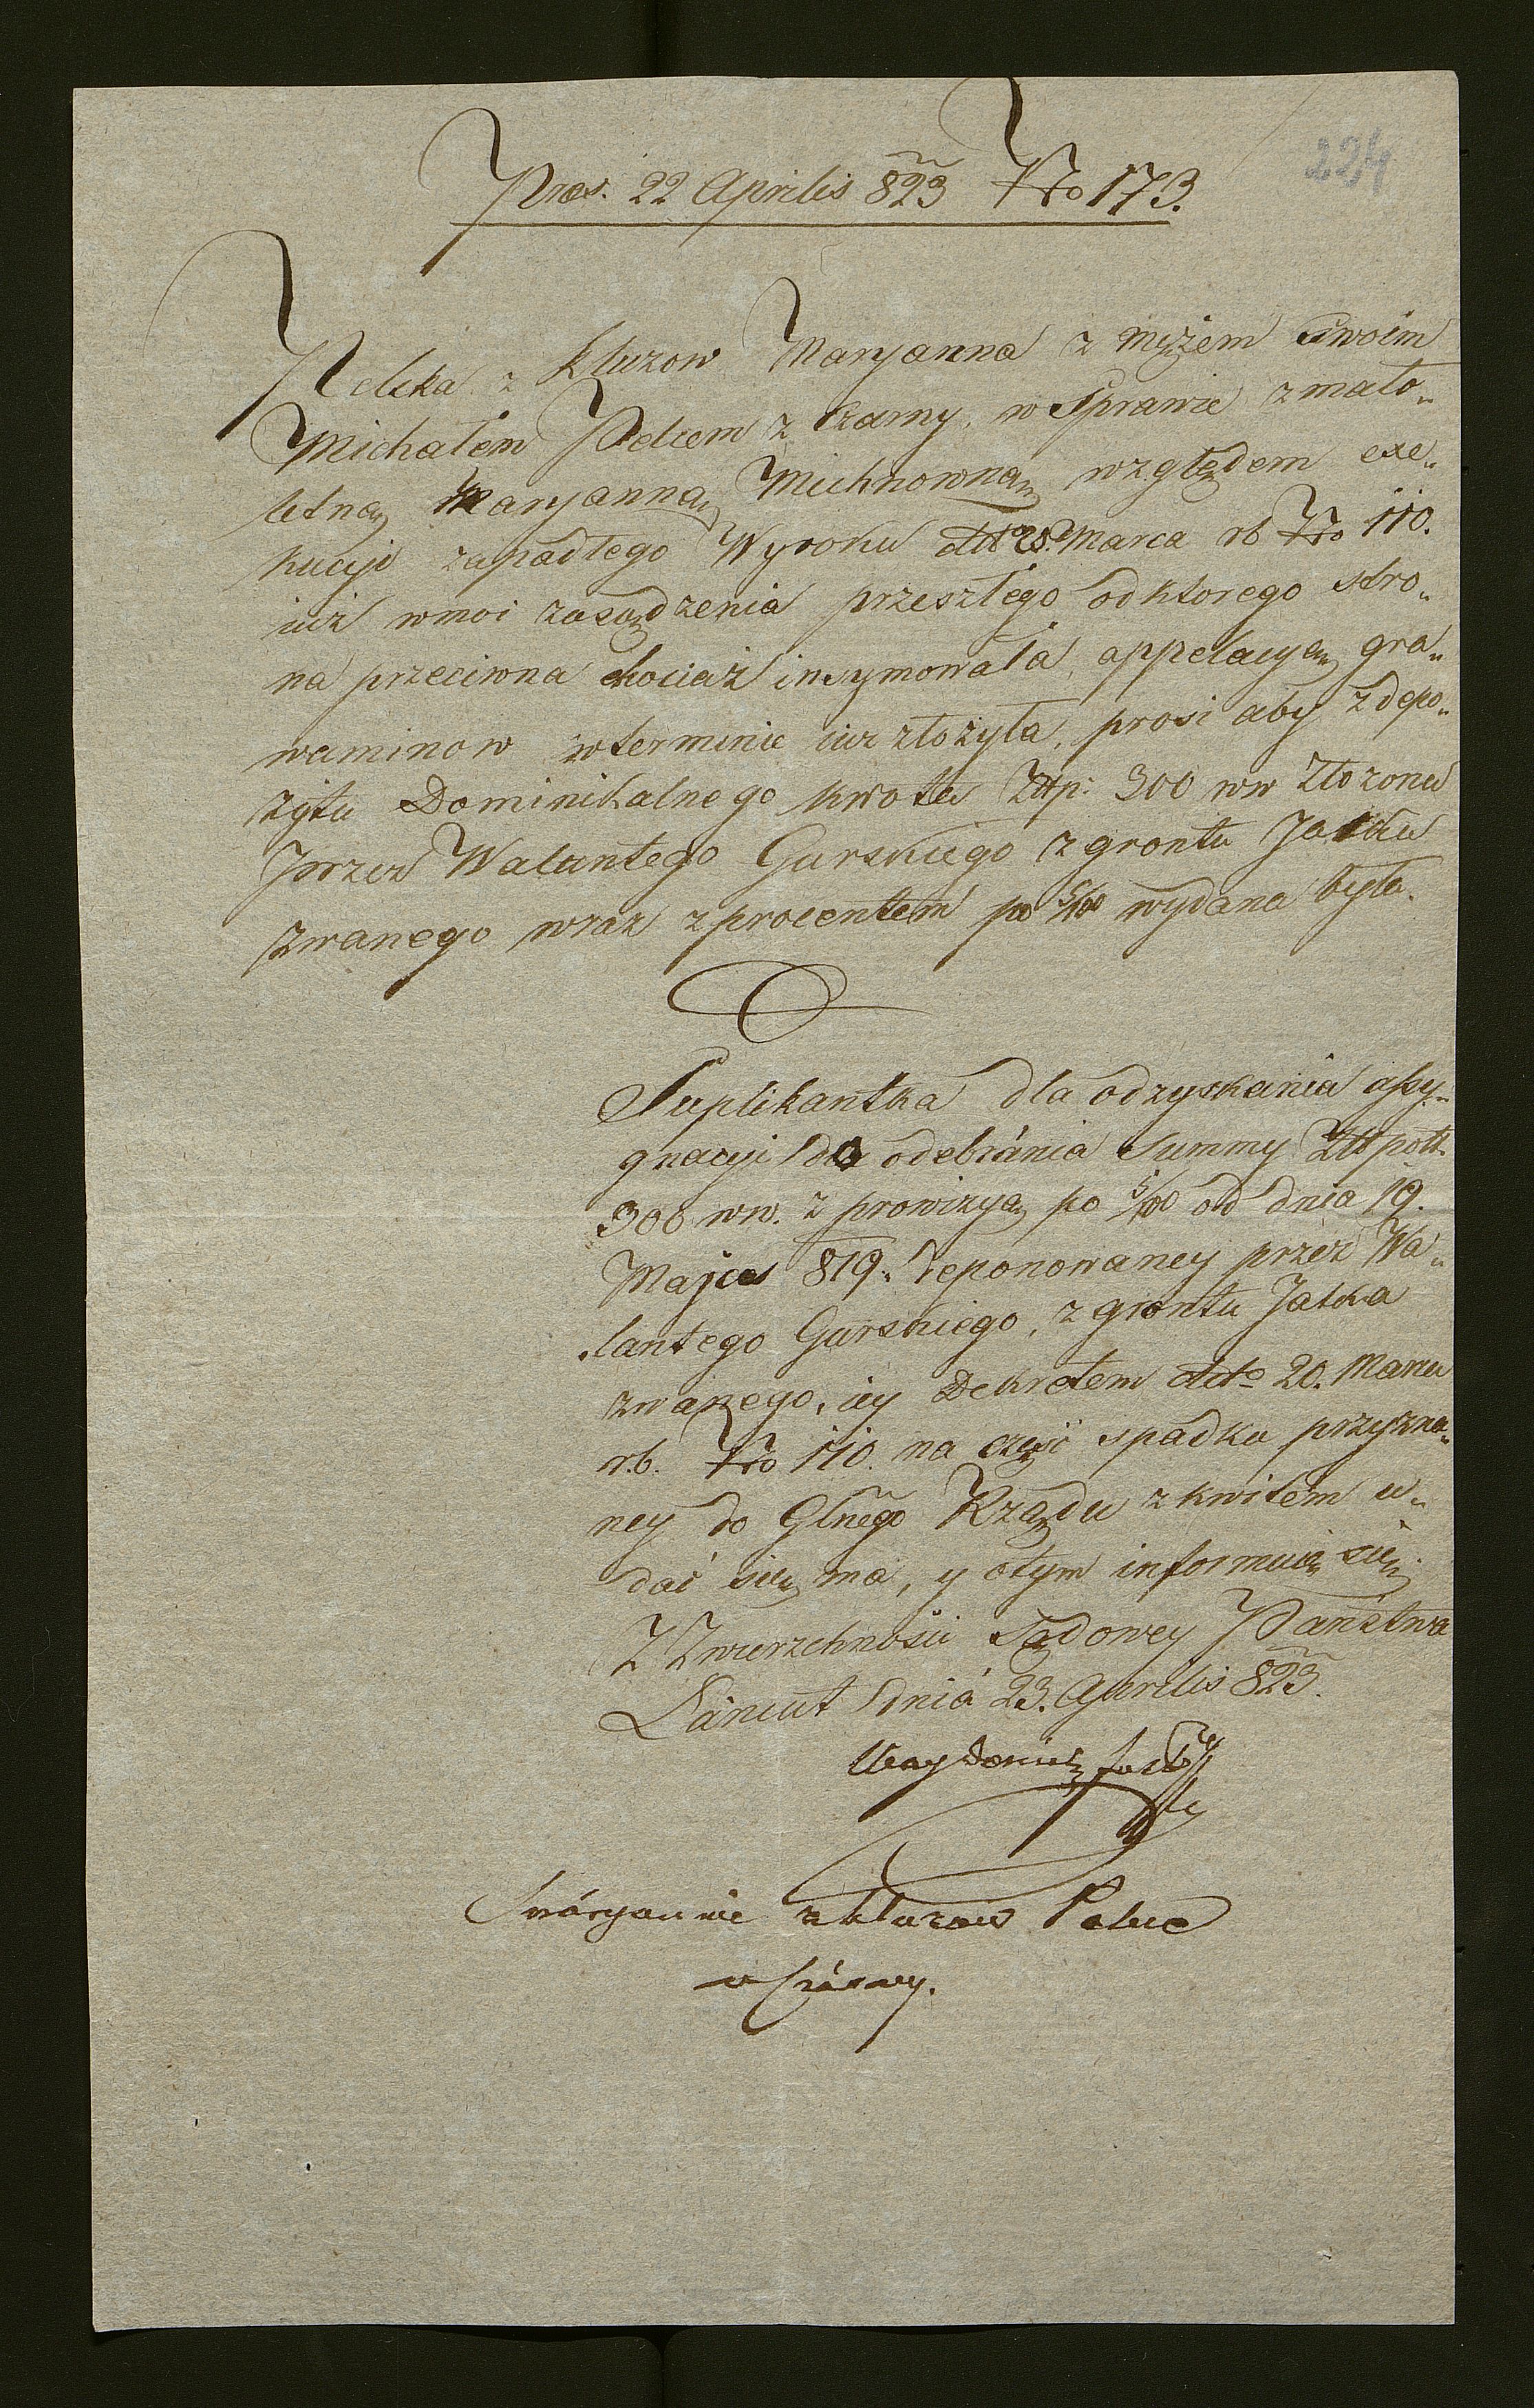 224
Præs. 22 Aprilis 823 Nro 173.
Pelcka z Kluzow Maryanna z mężem swoim
Michałem Pelcem z Czarny, w Sprawie z mało„
letną Maryanną Michnowną względem exe„
kucyi zapadłego Wyroku ddto 20. Marca rb Nro 110.
iuż wmoi zasądzenia przeszłego odktorego stro„
na przeciwna chociaż insymowała appelacyą gra„
waminow wterminie niezłożyła, prosi aby zdepo„
zytu Dominikalnego kwota Złtp: 300 ww złożona
przez Walantego Gurskiego z grontu Jatka
zwanego wraz zprocentem po 5/100 wydana była.
Suplikantka dla odzyskania assy„
gnacyi do odebránia Summy Złtpolt.
300 ww. z prowizyą po 5/100 od dnia 19.
Maja 819. deponowaney przez Wa„
lantego Gurskiego, z grontu Jatka
zwanego, iey Dekretem ddto 20. Marca
r.b. Nro 110. na część spadku przyzna„
ney do Głnego Rządu zkwitem u„
dać się ma, y otym informuie się.
Z Zwierzchności Sądowey Państwa
Łáncut dniá 23. Aprilis 823.
Maryannie z Kluzow Pelce
w Czárny.